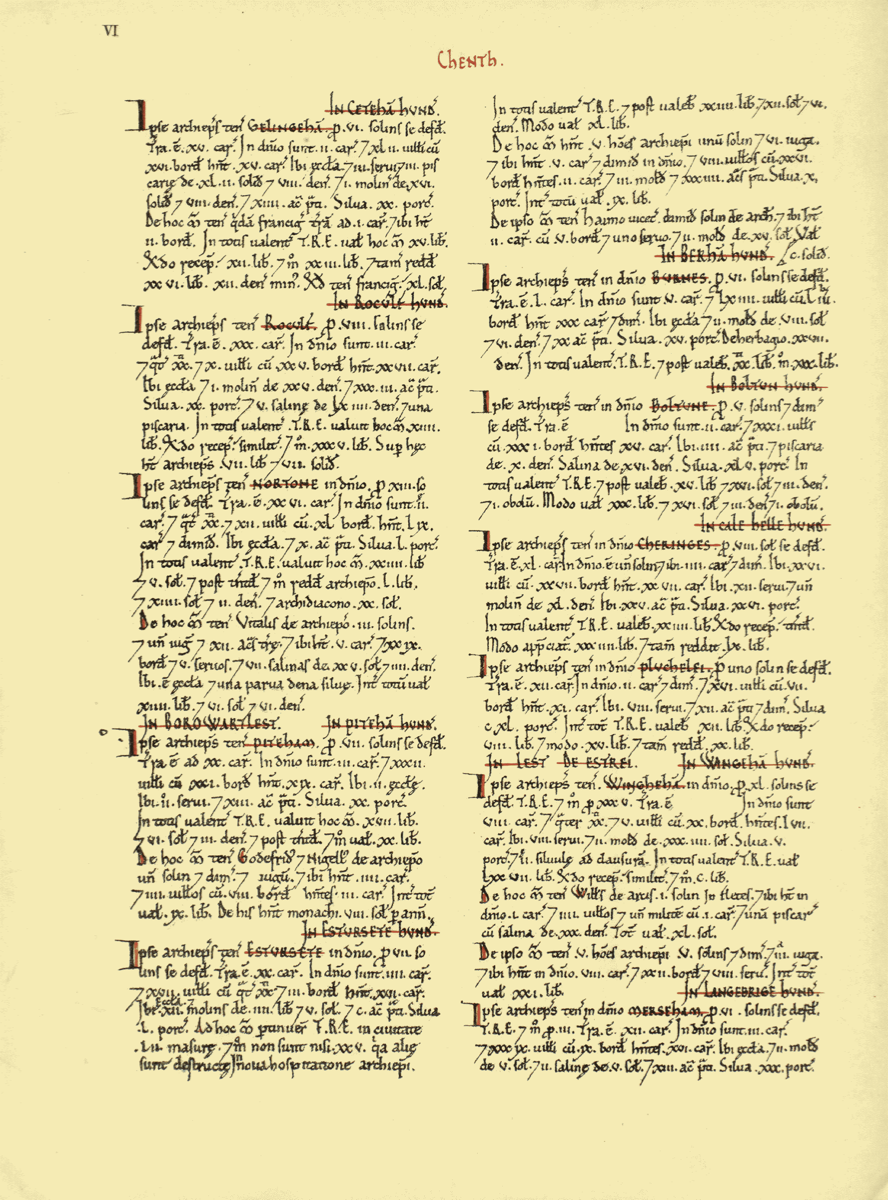 VI
Chenth.
In Cetehā hvnd.
Ipse archiep̄s ten̄ Gelingehā. p̄ .vi. solins se defd̄.
Tr̄a .ē. xv. car̄. In dn̄io sunt .ii. car̄. 7 xl 7 ii. uilli cū
xvi. bord̄ hn̄t .xv. car̄. Ibi ęccła. 7 iii. serui. 7 iii. pis
carię de .xl. ii. solid̄ 7 viii. den̄. 7 i. molin̄ de .xvi.
solid̄ 7 viii. den̄. 7 xiiii. ac̄ p̄ti. Silua .xx. porc̄.
De hoc m̄ ten̄ qđā francig̃ tr̄ā ad .i. car̄. 7 ibi ht̄
ii. bord̄. In totis ualent̄ T.R.E. uał hoc m̄ xv. lib̄.
Xdo recep̄. xii. lib̄. 7 m̄ xx iii. lib̄. 7 tam̄ redd̄
xx vi. lib̄. xii. den̄ min̄. Xd̄ ten̄ francig̃. xl. sol̄.
In Roculf hvnd.
Ipse archiep̄s ten̄ Roculf. p̄ .viii. solins se
defd̄. Tr̄a .ē. xxx. car̄. In dn̄io sunt .iii. car̄.
7 qt̄ xx. 7 x. uilli cū xx v. bord̄ hn̄t .xx vii. car̄.
Ibi ęccła 7 i. molin̄ de xx v. den̄. 7 xxx. iii. ac̄ p̄ti.
Silua .xx. porc̄. 7 v. salinę de lx iiii. den̄. 7 una
piscaria. In totis ualent̄ .T.R.E. ualuit hoc m̄ .xx iiii.
lib̄. Xdo recep̄. similit̄. 7 m̄. xxx v. lib̄. Sup̄ hęc
ht̄ archiep̄s .vii. lib̄ 7 vii. solid̄.
Ipse archiep̄s ten̄ Nortone in dn̄io. p̄ xiii. so
lins se defd̄. Tr̄a .ē. xx vi. car̄. In dn̄io sunt .ii.
car̄. 7 qt̄ xx. 7 xii. uilli cū .xl. bord̄ hn̄t. l ix.
car̄ 7 dimid̄. Ibi ęccła. 7 x. ac̄ p̄ti. Silua .l. porc̄.
In totis ualent̄ .T.R.E. ualuit hoc m̄. xx iiii. lib̄
7 v. sol̄. 7 post tn̄td̄. 7 m̄ redd̄ archiep̄o .l. lib̄.
7 xiiii. sol̄ 7 ii. den̄. 7 archidiacono .xx. sol̄.
De hoc m̄ ten̄ Vitalis de archiep̄o .iii. solins.
7 un̄ iug̃ 7 xii. ac̄s tr̄ę. 7 ibi hn̄t .v. car̄. 7 xx ix.
bord̄ 7 v. seruos. 7 vii. salinas de .xx v. sol̄ 7 iiii. den̄.
Ibi .ē ęccła 7 una parua dena siluę. Int̄ totū uał
xiiii. lib̄. 7 vi. sol̄ 7 vi. den̄.
In Borowartlest. In Pitehā hvnd.
Ipse archiep̄s ten̄ Piteham. p̄ .vii. solins se defd̄.
Tr̄a .ē ad .xx. car̄. In dn̄io sunt .iii. car̄. 7 xxx ii.
uilli cū xxi. bord̄ hn̄t .x ix. car̄. Ibi .ii. ęccłę.
Ibi .ii. serui. 7 xiii. ac̄ p̄ti. Silua .xx. porc̄.
In totis ualent̄ T.R.E. ualuit hoc m̄ .xv ii. lib̄.
7 vi. sol̄. 7 iii. den̄. 7 post tn̄td̄. 7 m̄ uał .xx. lib̄.
De hoc m̄ ten̄ Godefrid̄ 7 Nigell̄ de archiep̄o
un̄ solin̄ 7 dim̄. 7 iugū. 7 ibi hn̄t .iiii. car̄.
7 iiii. uillos cū .viii. bord̄ hn̄tes .iii. car̄. Int̄ tot̄
uał .ix. lib̄. De his hn̄t monachi .viii. sol̄ p̄ ann̄.
In Estursete hvnd.
Ipse archiep̄s ten̄ Estursete in dn̄io. p̄ vii. so
lins se defd̄. Tr̄a .ē. xx. car̄. In dn̄io sunt .iiii. car̄.
7 xx vii. uilli cū qt̄ xx 7 iii. bord̄ hn̄t .xx vi. car̄.
Ibi ęccła 7 xii. molins de .iiii. lib̄ 7 v. sol̄. 7 c. ac̄ p̄ti. Silua
.l. porc̄. Ad hoc m̄ p̄tinuer̄ T.R.E. in ciuitate
.l ii. masurę. 7 m̄ non sunt nisi .xx v. q̄a alię
sunt destructę In noua hospitatione archiep̄i.
In totis ualent̄ T.R.E. 7 post ualeb̄ xx iiii. lib̄. 7 xii. sol̄ 7 vi.
den̄. Modo uał xl. lib̄.
De hoc m̄ hn̄t .v. hōes archiep̄i unū solin̄ 7 vi. iuga.
7 ibi hn̄t .v. car̄ 7 dimid̄ in dn̄io. 7 viii. uillos cū xx vi.
bord̄ hn̄tes .ii. car̄. 7 iii. mold̄ 7 xxx iiii. ac̄s p̄ti. Silua .x.
porc̄. Int̄ totū uał .ix. lib̄.
De ipso m̄ ten̄ Haimo uicec̄. dimid̄ solin̄ de arch̄. 7 ibi ht̄
ii. car̄. cū .v. bord̄ 7 uno seruo. 7 ii. mold̄ de .xv. sol̄. Vał
In Berhā hvnd. c. solid̄.
Ipse archiep̄s ten̄ in dn̄io Burnes. p̄ .vi. solins se defd̄.
Tr̄a .ē. l. car̄. In dn̄io sunt .v. car̄. 7 lx iiii. uilli cū l iii.
bord̄ hn̄t xxx car̄ 7 dim̄. Ibi ęccła 7 ii. mold̄ de .viii. sol̄
7 vi. den̄. 7 xx ac̄ p̄ti. Silua .xv. porc̄. De herbagio .xx vii.
den̄. In totis ualent̄ T.R.E. 7 post ualeb̄. xx. lib̄. m̄ .xxx. lib̄.
In Boltun hvnd.
Ipse archiep̄s ten̄ in dn̄io Boltune. p̄ .v. solins 7 dim̄
se defd̄. Tr̄a .ē In dn̄io sunt .ii. car̄. 7 xxx i. uilli
cū xxx i. bord̄ hn̄tes xv. car̄. Ibi .iiii. ac̄ p̄ti. 7 piscaria
de .x. den̄. Salina de .xvi. den̄. Silua .xl v. porc̄. In
totis ualent̄ T.R.E. 7 post ualeb̄. xx. lib̄ 7 xx vi. sol̄ 7 iii. den̄.
7 i. obolū. Modo uał xxx. lib̄. 7 xx vi. sol̄ 7 iii. den̄ 7 i. obolū.
In Cale Helle hvnd.
Ipse archiep̄s ten̄ in dn̄io Cheringes. p̄ .viii. sol̄ se defd̄.
Tr̄a .ē. xl. car̄. In dn̄io .ē un̄ solin̄ 7 ibi .iiii. car̄ 7 dim̄. Ibi .xx vi.
uilli cū xx vii. bord̄ hn̄t .xx vii. car̄. Ibi .xii. serui. 7 un̄
molin̄ de .xl. den̄. Ibi .xx v. ac̄ p̄ti. Silua .xx vi. porc̄.
In totis ualent̄ T.R.E. ualeb̄. xx iiii. lib̄. Xdo recep̄. tn̄td̄.
Modo app̄ciat̄. xxx iiii. lib̄. 7 tam̄ reddit .lx. lib̄.
Ipse archiep̄s ten̄ in dn̄io Pluchelei. p̄ uno solin se defd̄.
Tr̄a .ē. xii. car̄. In dn̄io .ii. car̄ 7 dim̄. 7 xvi. uilli cū .vii.
bord̄ hn̄t .xi. car̄. Ibi .viii. serui. 7 xii. ac̄ p̄ti 7 dim̄. Silua
c xl. porc̄. Int̄ tot̄ T.R.E. ualeb̄ xii. lib̄. Xdo recep̄.
viii. lib̄. 7 modo .xv. lib̄. 7 tam̄ redd̄. xx. lib̄.
In Lest de Estrei. In Wingehā hvnd.
Ipse archiep̄s ten̄. Wingehā. in dn̄io. p̄ .xl. solins se
defd̄. T.R.E. 7 m̄ p̄ xxx v. Tr̄a .ē In dn̄io sunt
viii. car̄. 7 qt̄er xx. 7 v. uilli cū .xx. bord̄ hn̄tes .l vii.
car̄. Ibi .viii. serui. 7 ii. mold̄ de .xxx iiii. sol̄. Silua .v.
porc̄. 7 ii. siluulę ad clausurā. In totis ualent̄ T.R.E. uał
lxx vii. lib̄. Xdo recep̄. similit̄. 7 m̄ .c. lib̄.
De hoc m̄ ten̄ Wills de arcis .i. solin̄ In fletes. 7 ibi ht̄ in
dn̄io .i. car̄. 7 iiii. uillos 7 un̄ militē cū .i. car̄. 7 unā piscar̄
cū salina de .xxx. den̄. Tot̄ uał .xl. sol̄.
De ipso m̄ ten̄ .v. hōes archiep̄i .v. solins 7 dim̄. 7 iii. iuga.
7 ibi hn̄t in dn̄io .viii. car̄. 7 xx ii. bord̄ 7 viii. seru̇. Int̄ tot̄
uał xxi. lib̄.
In Langebrige hvnd.
Ipse archiep̄s ten̄ in dn̄io Merseham. p̄ vi. solins se defd̄.
T.R.E. 7 m̄ p̄ .iii. Tr̄a .ē. xii. car̄. In dn̄io sunt .iii. car̄.
7 xxx ix. uilli cū .ix. bord̄ hn̄tes .xvi. car̄. Ibi ęccła. 7 ii. mold̄
de .v. sol̄. 7 ii. salinę de .v. sol̄. 7 xiii. ac̄ p̄ti. Silua .xxx. porc̄.